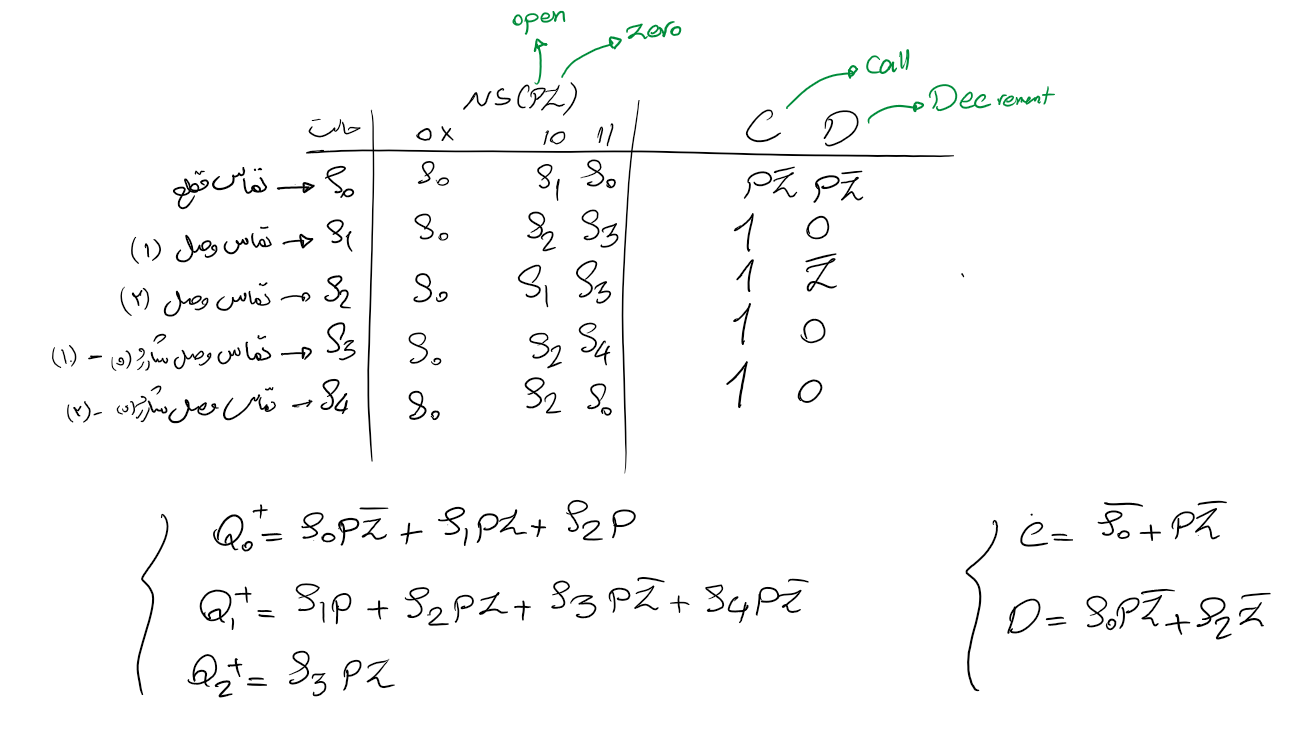 open
zero
Call
Decrement
NS(PZ)
حالت 0X 10 11 C D
تماس قطع → S₀ S₀ S₁ S₀ PZ̅ PZ̅
تماس وصل (۱) → S₁ S₀ S₂ S₃ 1 0
تماس وصل (۲) → S₂ S₀ S₁ S₃ 1 Z̅
تماس وصل (۰) - (۱) → S₃ S₀ S₂ S₄ 1 0
تماس وصل (۰) - (۲) → S₄ S₀ S₂ S₀ 1 0
Q₀⁺ = S₀PZ̅ + S₁PZ + S₂P
Q₁⁺ = S₁P + S₂PZ + S₃PZ̅ + S₄PZ̅
Q₂⁺ = S₃PZ
C = S̅₀ + PZ̅
D = S₀PZ̅ + S₂Z̅